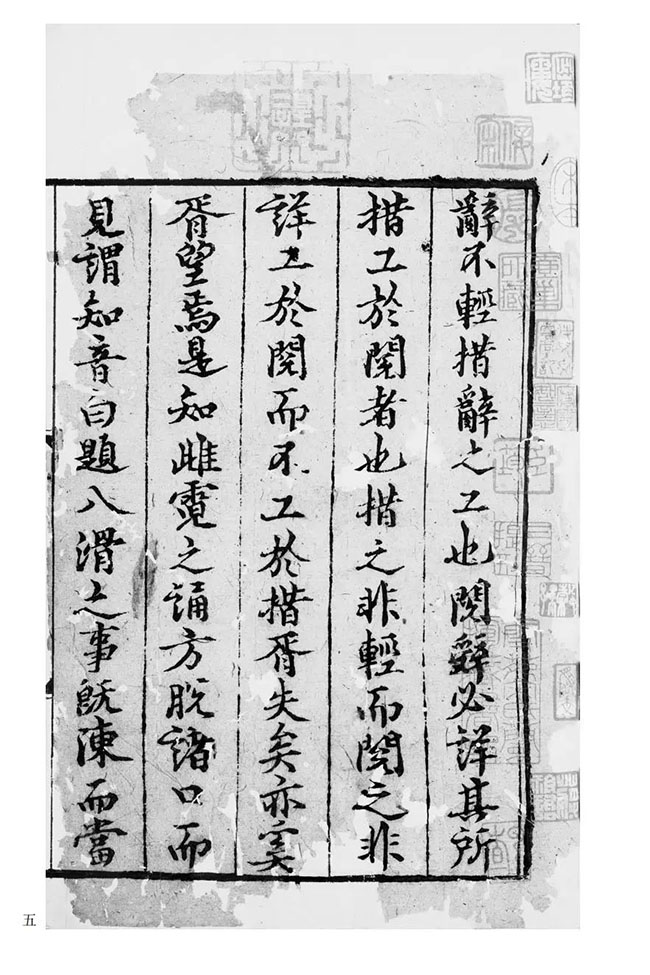 辭不輕措辭之工也閱辭必詳其所
措工於閱者也措之非輕而閱之非
詳工於閱而不工於措胥失矣亦奚
胥望焉是知雌霓之誦方脫諸口而
見謂知音白題八滑之事既陳而當
五